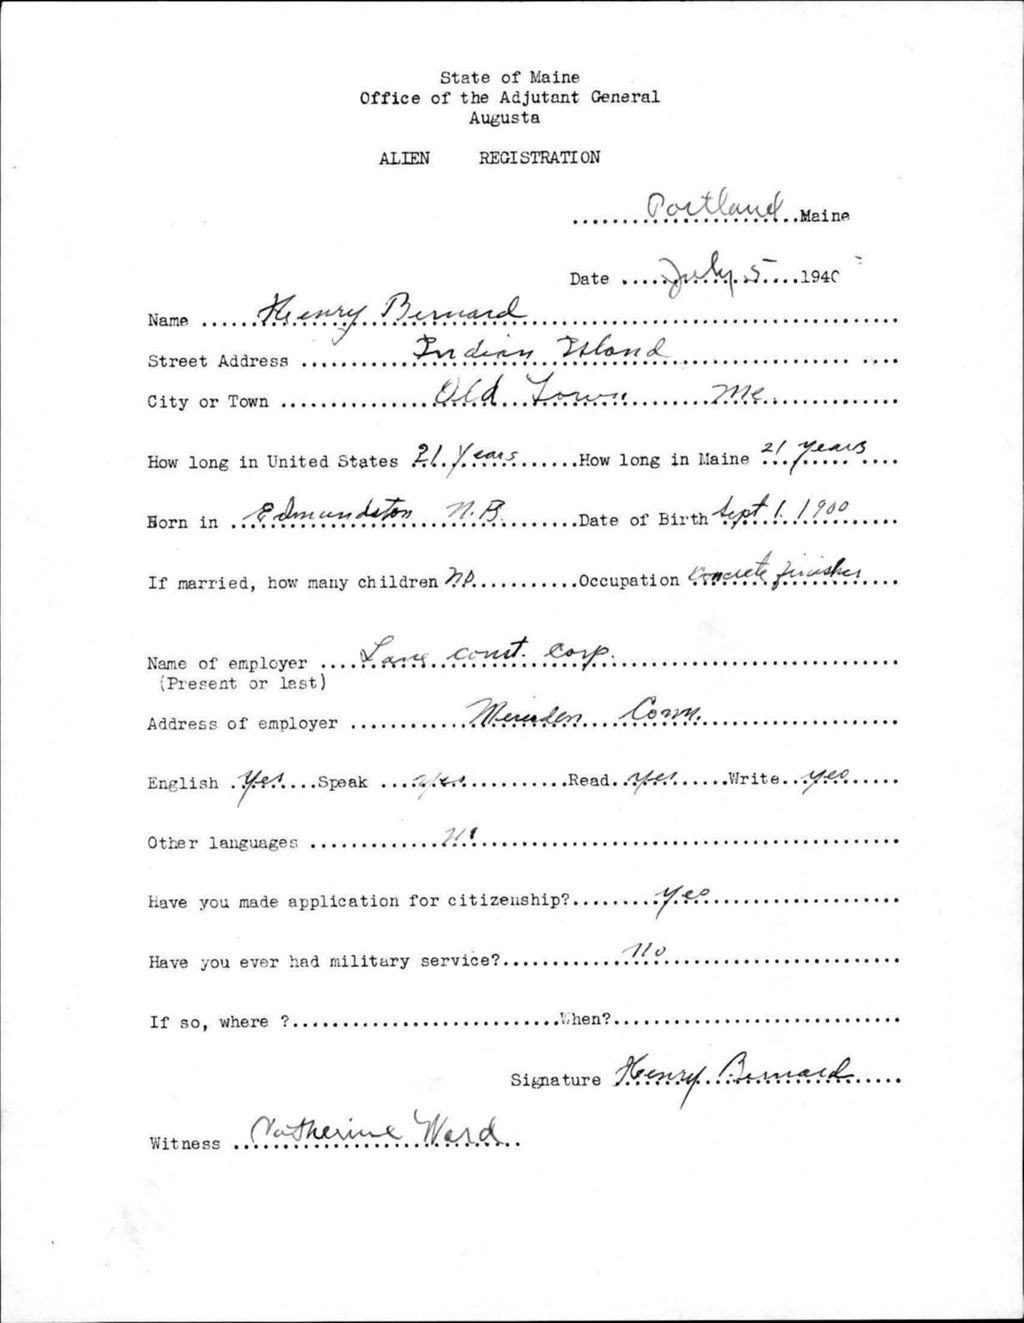 State of Maine
Office of the Adjutant General
Augusta
ALIEN REGISTRATION
Portland Maine
Date July 5 1940
Name Henry Bernard
Street Address Indian Island
City or Town Old Town Me
How long in United States 21 Years How long in Maine 21 years
Born in Edmundston N.B. Date of Birth Sept 1. 1900
If married, how many children no Occupation Concrete finisher
Name of employer Lane const. corp.
(Present or last)
Address of employer Meriden Conn.
English Yes Speak yes Read yes Write yes
Other languages no
Have you made application for citizenship? yes
Have you ever had military service? No
If so, where ? When?
Signature Henry Bernard
Witness Catherine Ward